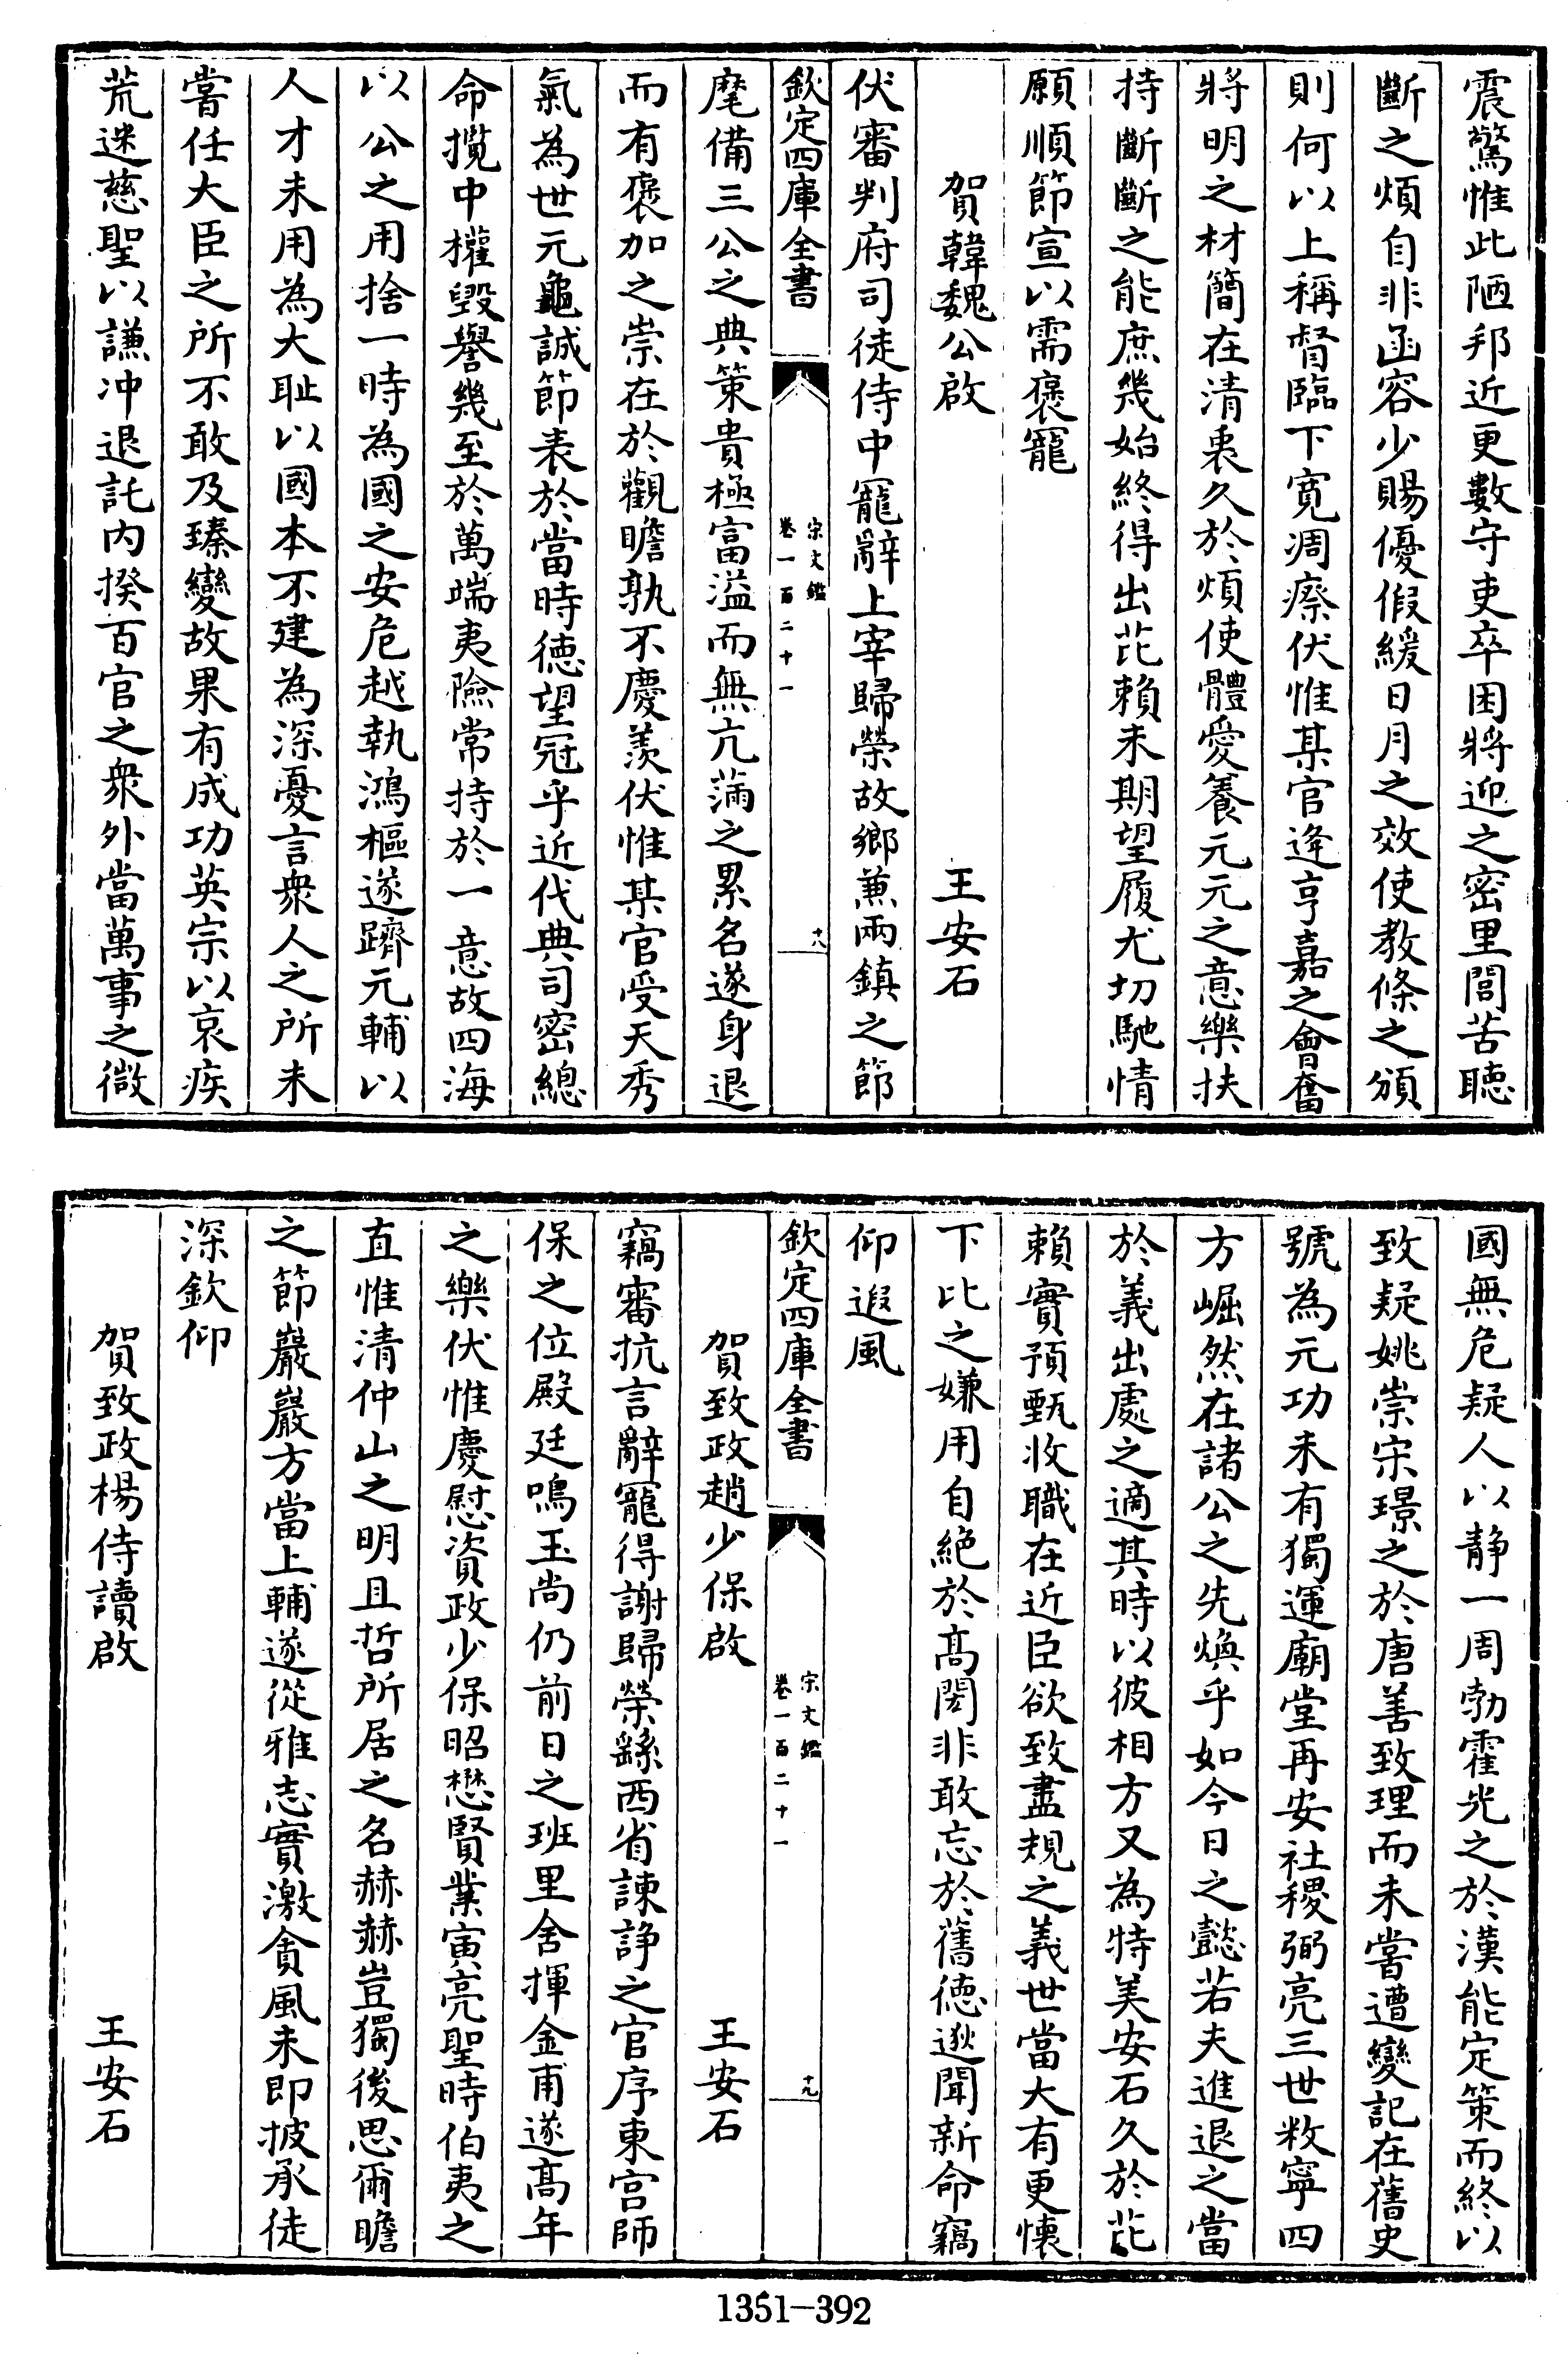 震驚惟此陋邦近更數守吏卒困將迎之密里閭苦聽
斷之煩自非函容少賜優假緩日月之效使教條之頒
則何以上稱督臨下寛凋瘵伏惟某官逄亨嘉之會奮
將明之材簡在清衷久於煩使體愛養元元之意樂扶
持斷斷之能庶幾始終得出芘賴未期望履尤切馳情
願順節宣以需褒寵
賀韓魏公啟　王安石
伏審判府司徒侍中寵辭上宰歸榮故鄉兼兩鎮之節
欽定四庫全書　宋文鑑　卷一百二十一　十八
麾備三公之典策貴極富溢而無亢滿之累名遂身退
而有褒加之崇在於觀瞻孰不慶羨伏惟某官受天秀
氣為世元龜誠節表於當時徳望冠乎近代典司密總
命攬中權毀譽幾至於萬端夷險常持於一意故四海
以公之用捨一時為國之安危越執鴻樞遂躋元輔以
人才未用為大耻以國本不建為深憂言衆人之所未
嘗任大臣之所不敢及臻變故果有成功英宗以哀疾
荒迷慈聖以謙冲退託内揆百官之衆外當萬事之微
國無危疑人以静一周勃霍光之於漢能定策而終以
致疑姚崇宋璟之於唐善致理而未嘗遭變記在舊史
號為元功未有獨運廟堂再安社稷弼亮三世敉寧四
方崛然在諸公之先煥乎如今日之懿若夫進退之當
於義出處之適其時以彼相方又為特美安石久於芘
賴實預甄收職在近臣欲致盡規之義世當大有更懷
下比之嫌用自絶於髙閎非敢忘於舊徳逖聞新命竊
仰遐風
欽定四庫全書　宋文鑑　卷一百二十一　十九
賀致政趙少保啟　王安石
竊審抗言辭寵得謝歸榮繇西省諫諍之官序東宫師
保之位殿廷鳴玉尚仍前日之班里舍揮金甫遂髙年
之樂伏惟慶慰資政少保昭懋賢業寅亮聖時伯夷之
直惟清仲山之明且哲所居之名赫赫豈獨後思爾瞻
之節巖巖方當上輔遂從雅志實激貪風未即披承徒
深欽仰
賀致政楊侍讀啟　王安石
1351—392